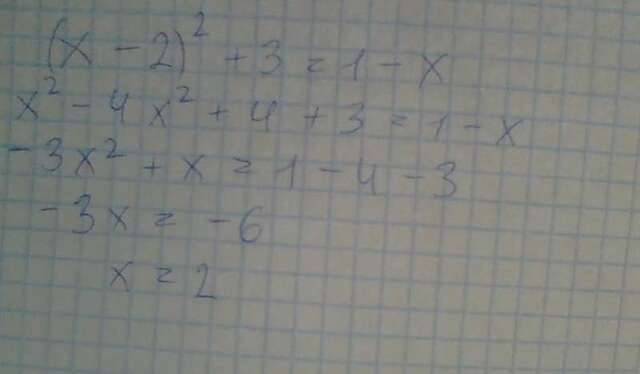 (x - 2)² + 3 = 1 - x
x² - 4x² + 4 + 3 = 1 - x
-3x² + x = 1 - 4 - 3
-3x = -6
x = 2